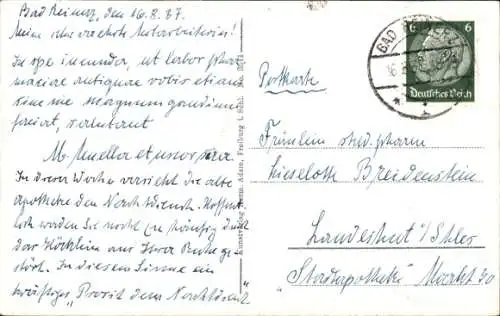 Bad Reinerz, den 16.8.37.
Meine sehr verehrte Mitarbeiterin!
In spe iucunda, ut labor phar-
maciae antiquae vobis etiam
bene me magnum gaudium
faciat, salutant
M. Mueller et uxor sua.
In dieser Woche versieht die alte
Apotheke den Nachtdienst. Hoffent-
lich werden Sie nicht zu häufig durch
das Glöcklein aus Ihrer Ruhe ge-
stört. In diesem Sinne ein
kräftiges „Prosit dem Nachtdienst"
Kunstverlag Herm. Adam, Freiburg i. Schl. No.
Postkarte
BAD
16.
6 6
Deutsches Reich
Fräulein stud. pharm
Lieselotte Breidenstein
Landeshut i/Schles
"Stadtapotheke" Markt 30